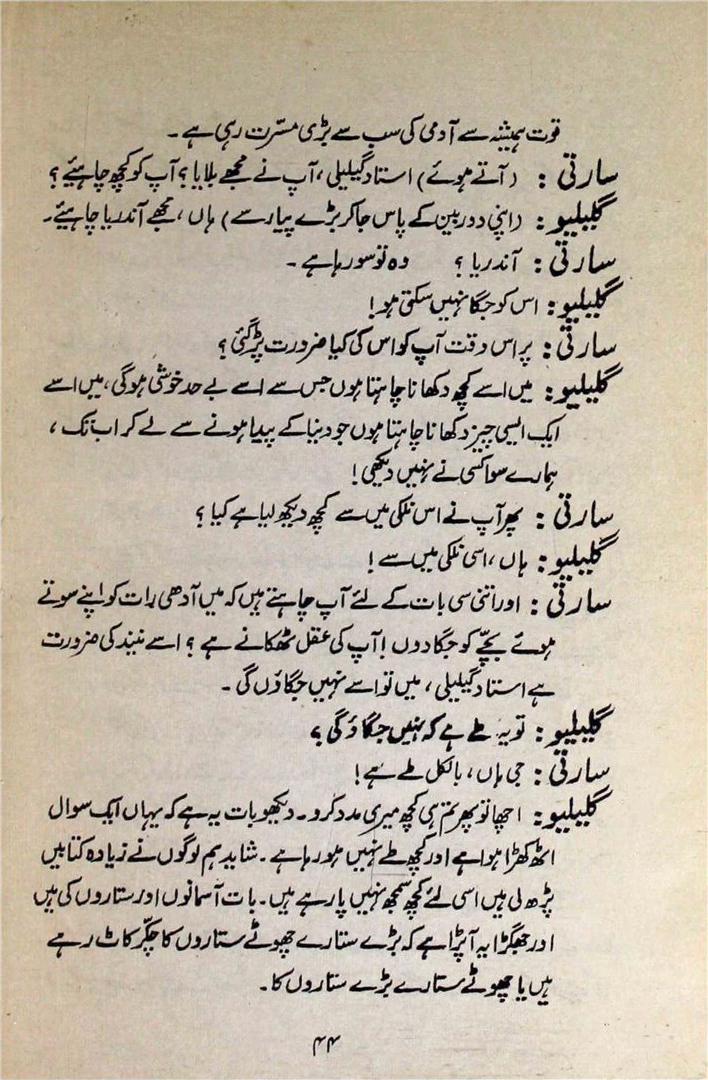 قوت ہمیشہ سے آدمی کی سب سے بڑی مسرّت رہی ہے۔
سارتی : (آتے ہوئے) استاد گیلیلی، آپ نے مجھے بلایا؟ آپ کو کچھ چاہیئے؟
گلیلیو : (اپنی دوربین کے پاس جا کر بڑے پیار سے) ہاں، مجھے آندریا چاہیئے۔
سارتی : آندریا؟ وہ تو سو رہا ہے۔
گلیلیو : اس کو جگا نہیں سکتی ہو!
سارتی : پر اس وقت آپ کو اس کی کیا ضرورت پڑ گئی؟
گلیلیو : میں اسے کچھ دکھانا چاہتا ہوں جس سے اسے بے حد خوشی ہوگی، میں اسے
ایک ایسی چیز دکھانا چاہتا ہوں جو دنیا کے پیدا ہونے سے لے کر اب تک،
ہمارے سوا کسی نے نہیں دیکھی!
سارتی : پھر آپ نے اس نلکی میں سے کچھ دیکھ لیا ہے کیا؟
گلیلیو : ہاں، اسی نلکی میں سے!
سارتی : اور اتنی سی بات کے لئے آپ چاہتے ہیں کہ میں آدھی رات کو اپنے سوتے
ہوئے بچّے کو جگا دوں! آپ کی عقل ٹھکانے ہے؟ اسے نیند کی ضرورت
ہے استاد گیلیلی، میں تو اسے نہیں جگاؤں گی۔
گلیلیو : تو یہ طے ہے کہ نہیں جگاؤ گی؟
سارتی : جی ہاں، بالکل طے ہے!
گلیلیو : اچھا تو پھر تم ہی کچھ میری مدد کرو۔ دیکھو بات یہ ہے کہ یہاں ایک سوال
اٹھ کھڑا ہوا ہے اور کچھ طے نہیں ہو رہا ہے۔ شاید ہم لوگوں نے زیادہ کتابیں
پڑھ لی ہیں اسی لئے کچھ سمجھ نہیں پا رہے ہیں۔ بات آسمانوں اور ستاروں کی ہیں
اور جھگڑا یہ آ پڑا ہے کہ بڑے ستارے چھوٹے ستاروں کا چکّر کاٹ رہے
ہیں یا چھوٹے ستارے بڑے ستاروں کا۔
۴۴